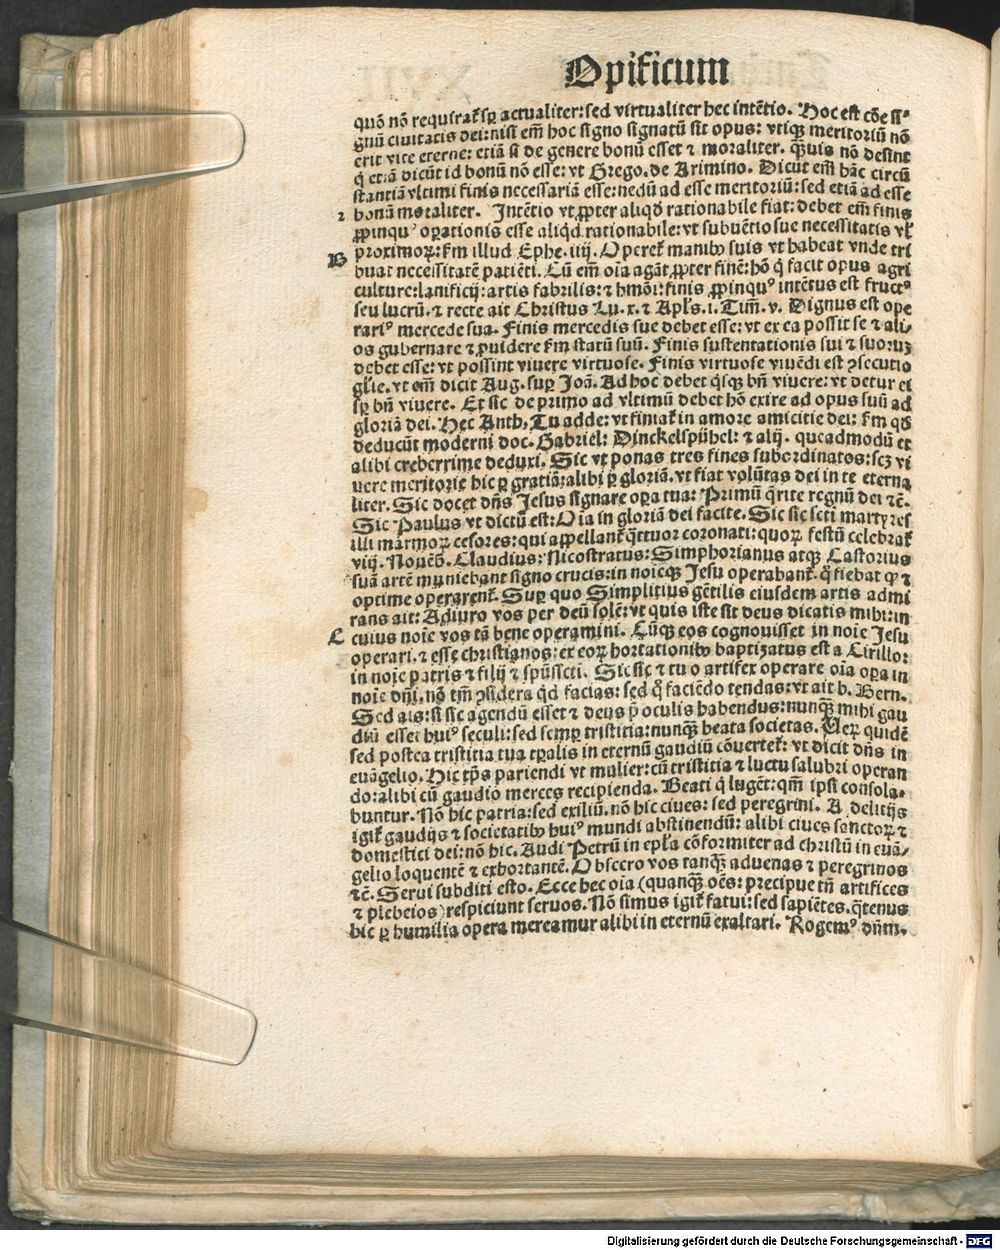 Opificum
quō nō requiratꝰ sꝑ actualiter: sed virtualiter hec intētio. Hoc est cōe si-
gnū ciuitatis dei: nisi em̄ hoc signo signatū sit opus: vtiqꝫ meritoriū nō
erit vite eterne: etiā si de genere bonū esset ⁊ moraliter. q̄ꝫuis nō desint
q̇ etiā dicūt id bonū nō esse: vt Grego. de Arimino. Dicūt em̄ hāc circū
stantiā vltimi finis necessariā esse: nedū ad esse meritoriū: sed etiā ad esse
2 bonū moraliter. Intētio vt ꝓpter aliqd̄ rationabile fiat: debet em̄ finis
ꝓpinquꝰ oꝑationis esse aliqd̄ rationabile: vt subuētio sue necessitatis vl̓
B proximoꝝ: ẜm illud Ephe. iiij. Operet̓ manibꝰ suis vt habeat vnde tri
buat necessitatē patiēti. Cū em̄ oīa agāt ꝓpter finē: hō q̇ facit opus agri
culture: lanificij: artis fabrilis: ⁊ hmōi: finis ꝓpinquꝰ intētus est fructꝰ
seu lucrū. ⁊ recte ait Christus Lu. x. ⁊ Apl̓s. i. Tim̄. v. Dignus est ope
rariꝰ mercede sua. Finis mercedis sue debet esse: vt ex ea possit se ⁊ ali-
os gubernare ⁊ ꝓuidere ẜm statū suū. Finis sustentationis sui ⁊ suoruꝫ
debet esse: vt possint viuere virtuose. Finis virtuose viuēdi est ꝯsecutio
gl̓ie. vt em̄ dicit Aug. suꝑ Joā. Ad hoc debet q̇sqꝫ bn̄ viuere: vt detur ei
sꝑ bn̄ viuere. Et sic de primo ad vltimū debet hō exire ad opus suū ad
gloriā dei. Hec Anth. Tu adde: vt finiat̓ in amore amicitie dei: ẜm qd̄
deducūt moderni doc. Gabriel: Dinckelspühel: ⁊ alij. queadmodū et
alibi creberrime deduxi. Sic vt ponas tres fines subordinatos: scꝫ vi
uere meritorie hic ꝑ gratiā: alibi ꝑ gloriā. vt fiat volūtas dei in te eterna
liter. Sic docet dn̄s Jesus signare oꝑa tua: Primū q̄rite regnū dei ⁊c̄.
Sic Paulus vt dictū est: Oīa in gloriā dei facite. Sic sic scti martyres
illi marmoꝝ cesores: qui appellant̓ q̄ttuor coronati: quoꝝ festū celebrat̓
viij. Nouēb. Claudius: Nicostratus: Simphorianus atqꝫ Castorius
suā artē muniebant signo crucis: in noīeqꝫ Jesu operabant̓. q̇ fiebat ꝙ ⁊
optime operarent̓. Suꝑ quo Simplitius gētilis eiusdem artis admi
rans ait: Adiuro vos per deū solē: vt quis iste sit deus dicatis mihi: in
C cuius noīe vos tā bene operamini. Cūqꝫ eos cognouisset in noīe Jesu
operari. ⁊ esse christianos: ex eoꝝ hortationibꝰ baptizatus est a Cirillo:
in noīe patris ⁊ filij ⁊ spūssctī. Sic sic ⁊ tu o artifex operare oīa oꝑa in
noīe dn̄i. nō tm̄ ꝯsidera qd̄ facias: sed q̊ faciēdo tendas: vt ait b. Bern.
Sed ais: si sic agendū esset ⁊ deus p̄ oculis habendus: nunqꝫ̄ mihi gau
diū esset huiꝰ seculi: sed semꝑ tristitia: nunqꝫ̄ beata societas. Veꝝ quidē
sed postea tristitia tua tꝑalis in eternū gaudiū cōuertet̓: vt dicit dn̄s in
euāgelio. Hic tp̄s pariendi vt mulier: cū tristitia ⁊ luctu salubri operan
do: alibi cū gaudio merces recipienda. Beati q̇ lugēt: qm̄ ipsi consola-
buntur. Nō hic patria: sed exiliū. nō hic ciues: sed peregrini. A delitijs
igit̓ gaudijs ⁊ societatibꝰ huiꝰ mundi abstinendū: alibi ciues sanctoꝝ ⁊
domestici dei: nō hic. Audi Petrū in epl̓a cōformiter ad christū in euā-
gelio loquentē ⁊ exhortantē. Obsecro vos tanqꝫ̄ aduenas ⁊ peregrinos
⁊c̄. Serui subditi esto. Ecce hec oīa (quanqꝫ̄ oēs: precipue tn̄ artifices
⁊ plebeios) respiciunt seruos. Nō simus igit̓ fatui: sed sapiētes. q̄tenus
hic ꝑ humilia opera mereamur alibi in eternū exaltari. Rogemꝰ dn̄m.
Digitalisierung gefördert durch die Deutsche Forschungsgemeinschaft - DFG